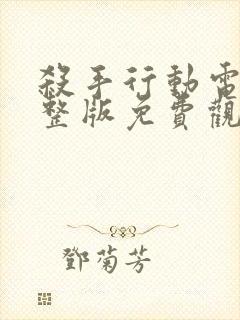 殺手行動電
整版免費觀
鄧菊芳